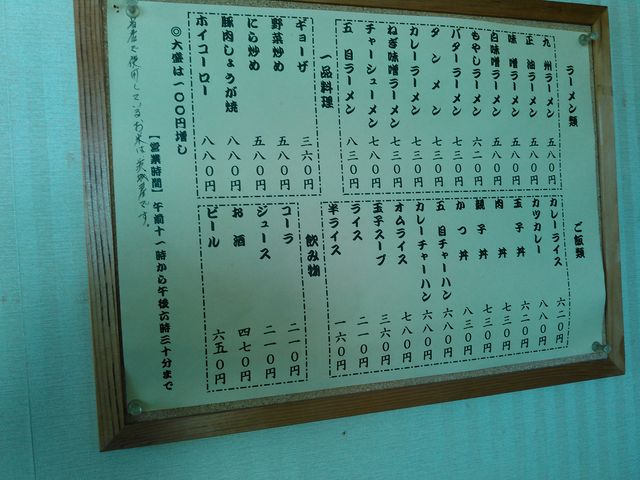 ラーメン類
九州ラーメン 五八〇円
正油ラーメン 五八〇円
味噌ラーメン 五八〇円
白味噌ラーメン 五八〇円
もやしラーメン 六二〇円
バターラーメン 七三〇円
タンメン 七三〇円
カレーラーメン 七三〇円
ねぎ味噌ラーメン 七三〇円
チャーシューメン 七八〇円
五目ラーメン 八三〇円
一品料理
ギョーザ 三六〇円
野菜炒め 五八〇円
にら炒め 五八〇円
豚肉しょうが焼 八八〇円
ホイコーロー 八八〇円
ご飯類
カレーライス 六二〇円
カツカレー 八八〇円
玉子丼 六二〇円
肉丼 七三〇円
親子丼 八三〇円
かつ丼 八三〇円
五目チャーハン 六八〇円
カレーチャーハン 六八〇円
オムライス 七八〇円
玉子スープ 三六〇円
ライス 二一〇円
半ライス 一六〇円
飲み物
コーラ 二一〇円
ジュース 二一〇円
お酒 四七〇円
ビール 六五〇円
◎大盛は一〇〇円増し
【営業時間】午前十一時から午後六時三十分まで
で使用しているお米は茨城産です。